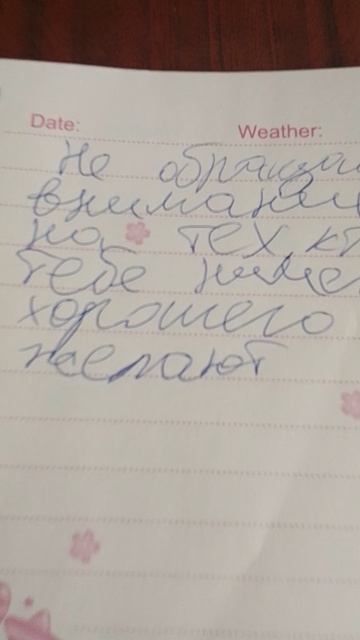 Date: Weather:
Не обращай
внимани
на тех, кт
тебе ниче
хорошего
желают